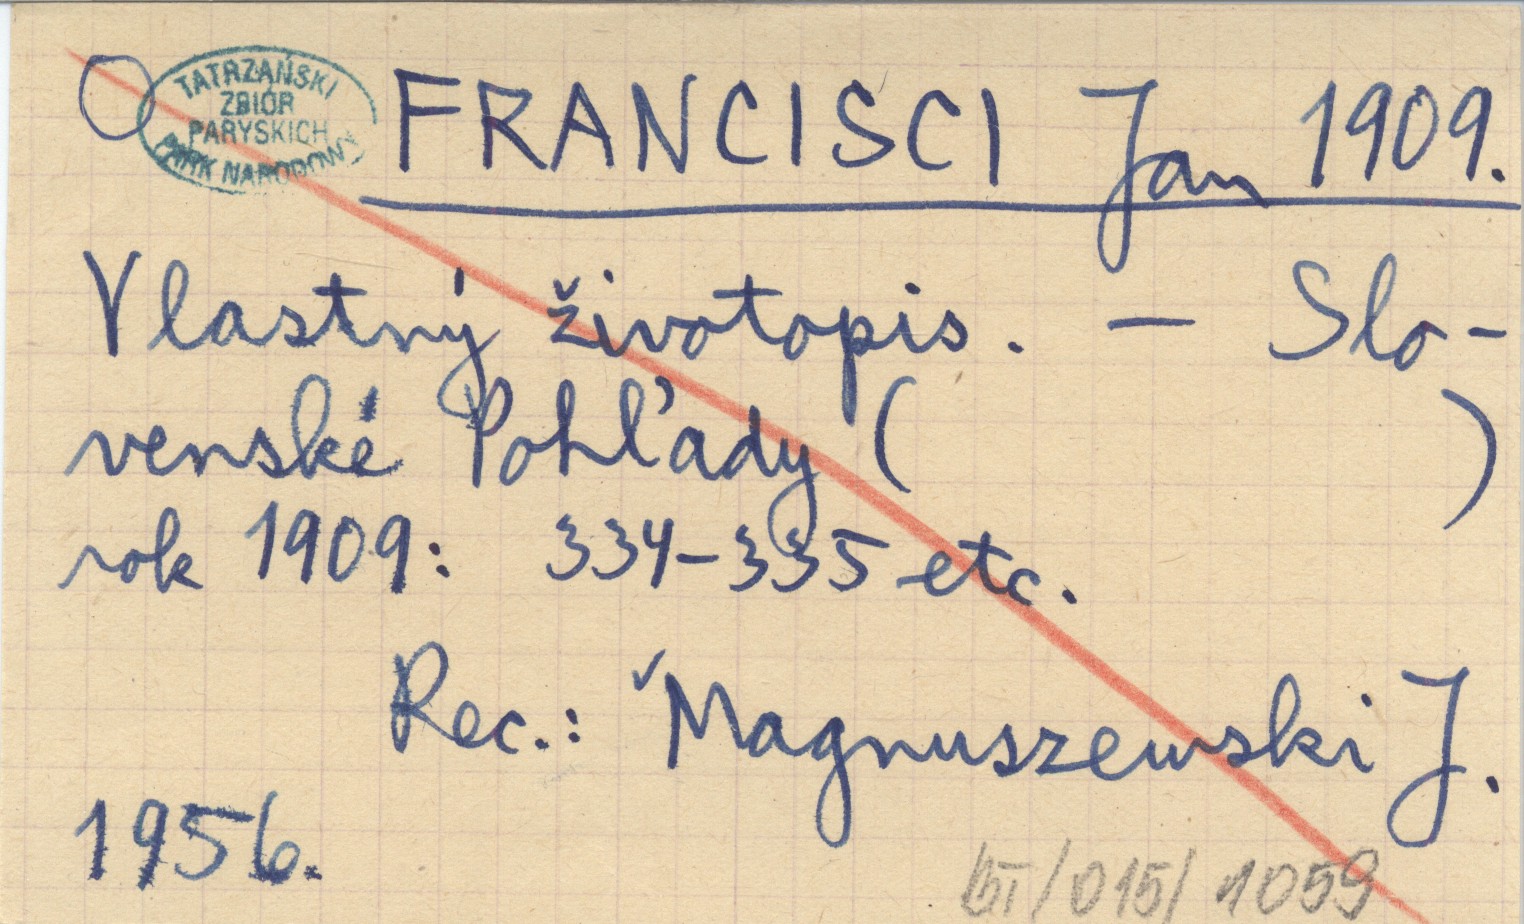 TATRZAŃSKI
ZBIÓR
PARYSKICH
PARK NARODOWY
FRANCISCI Jan 1909.
Vlastný životopis. — Slo-
venské Pohľady ( )
rok 1909: 334-335 etc.
Rec.: Magnuszewski J.
1956.
/015/ 1059